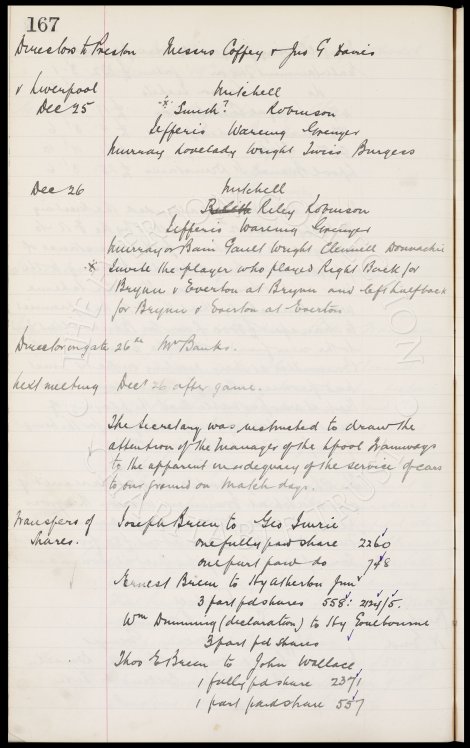 167
Directors to Preston Messrs Coffey & Jno G Davis
v Liverpool Mitchell
Dec 25 x Smith? Robinson
Jefferis Wareing Grenyer
Murray Lovelady Wright Twiss Burgess
Dec 26 Mitchell
Riley Robinson
Jefferis Wareing Grenyer
Murray or Bain Gault Wright Clennell Donnachie
x Invite the player who played Right Back for
Brynn v Everton at Brynn and left halfback
for Brynn v Everton at Everton
Director on gate 26th Mr Banks.
Next meeting Dec 26 after game.
The Secretary was instructed to draw the
attention of the Manager of the Lpool Tramways
to the apparent inadequacy of the service of cars
to our ground on match days.
Transfers of Joseph Breen to Geo Imrie
Shares. one fully paid share 2260
one part paid do 748
Ernest Breen to Hy Atherton Junr
3 part pd shares 558: 2124/5.
Wm Dunning (declaration) to Hy Goulbourne
3 part pd shares
Thos E Breen to John Wallace
1 fully pd share 2371
1 part paid share 557